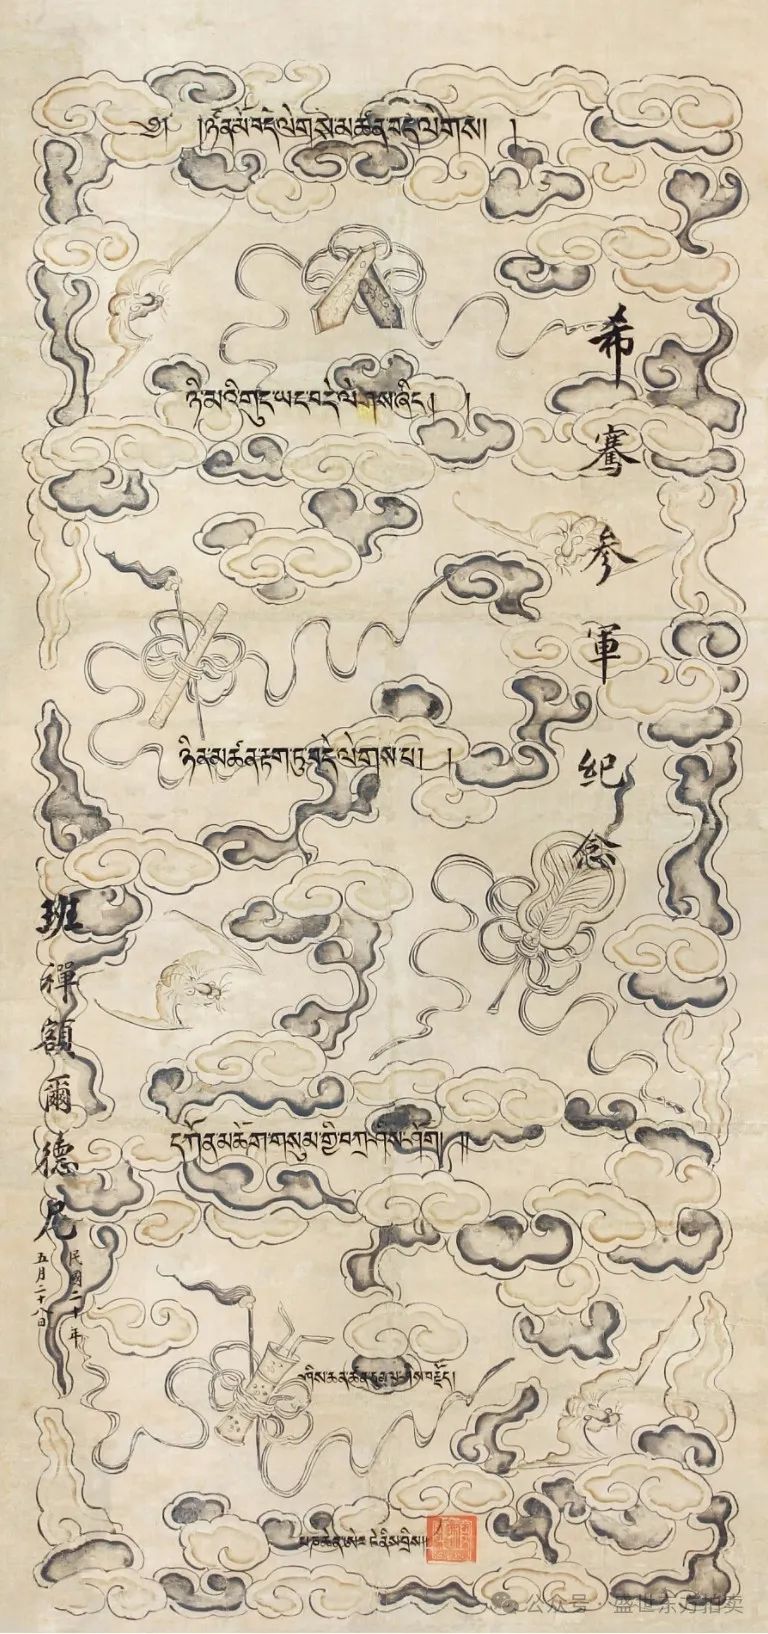 ༄༅། །ཉིན་མོ་བདེ་ལེགས་མཚན་བདེ་ལེགས། །
ཉི་མའི་གུང་ཡང་བདེ་ལེགས་ཤིང་། །
ཉིན་མཚན་རྟག་ཏུ་བདེ་ལེགས་པ། །
དཀོན་མཆོག་གསུམ་གྱི་བཀྲ་ཤིས་ཤོག །།
པཎ་ཆེན་ཨེར་ཏེ་ནིས་བྲིས།།
希騫参軍紀念
班禪額爾德尼
民國二十年
五月二十八日
公众号 · 盛世东方拍卖